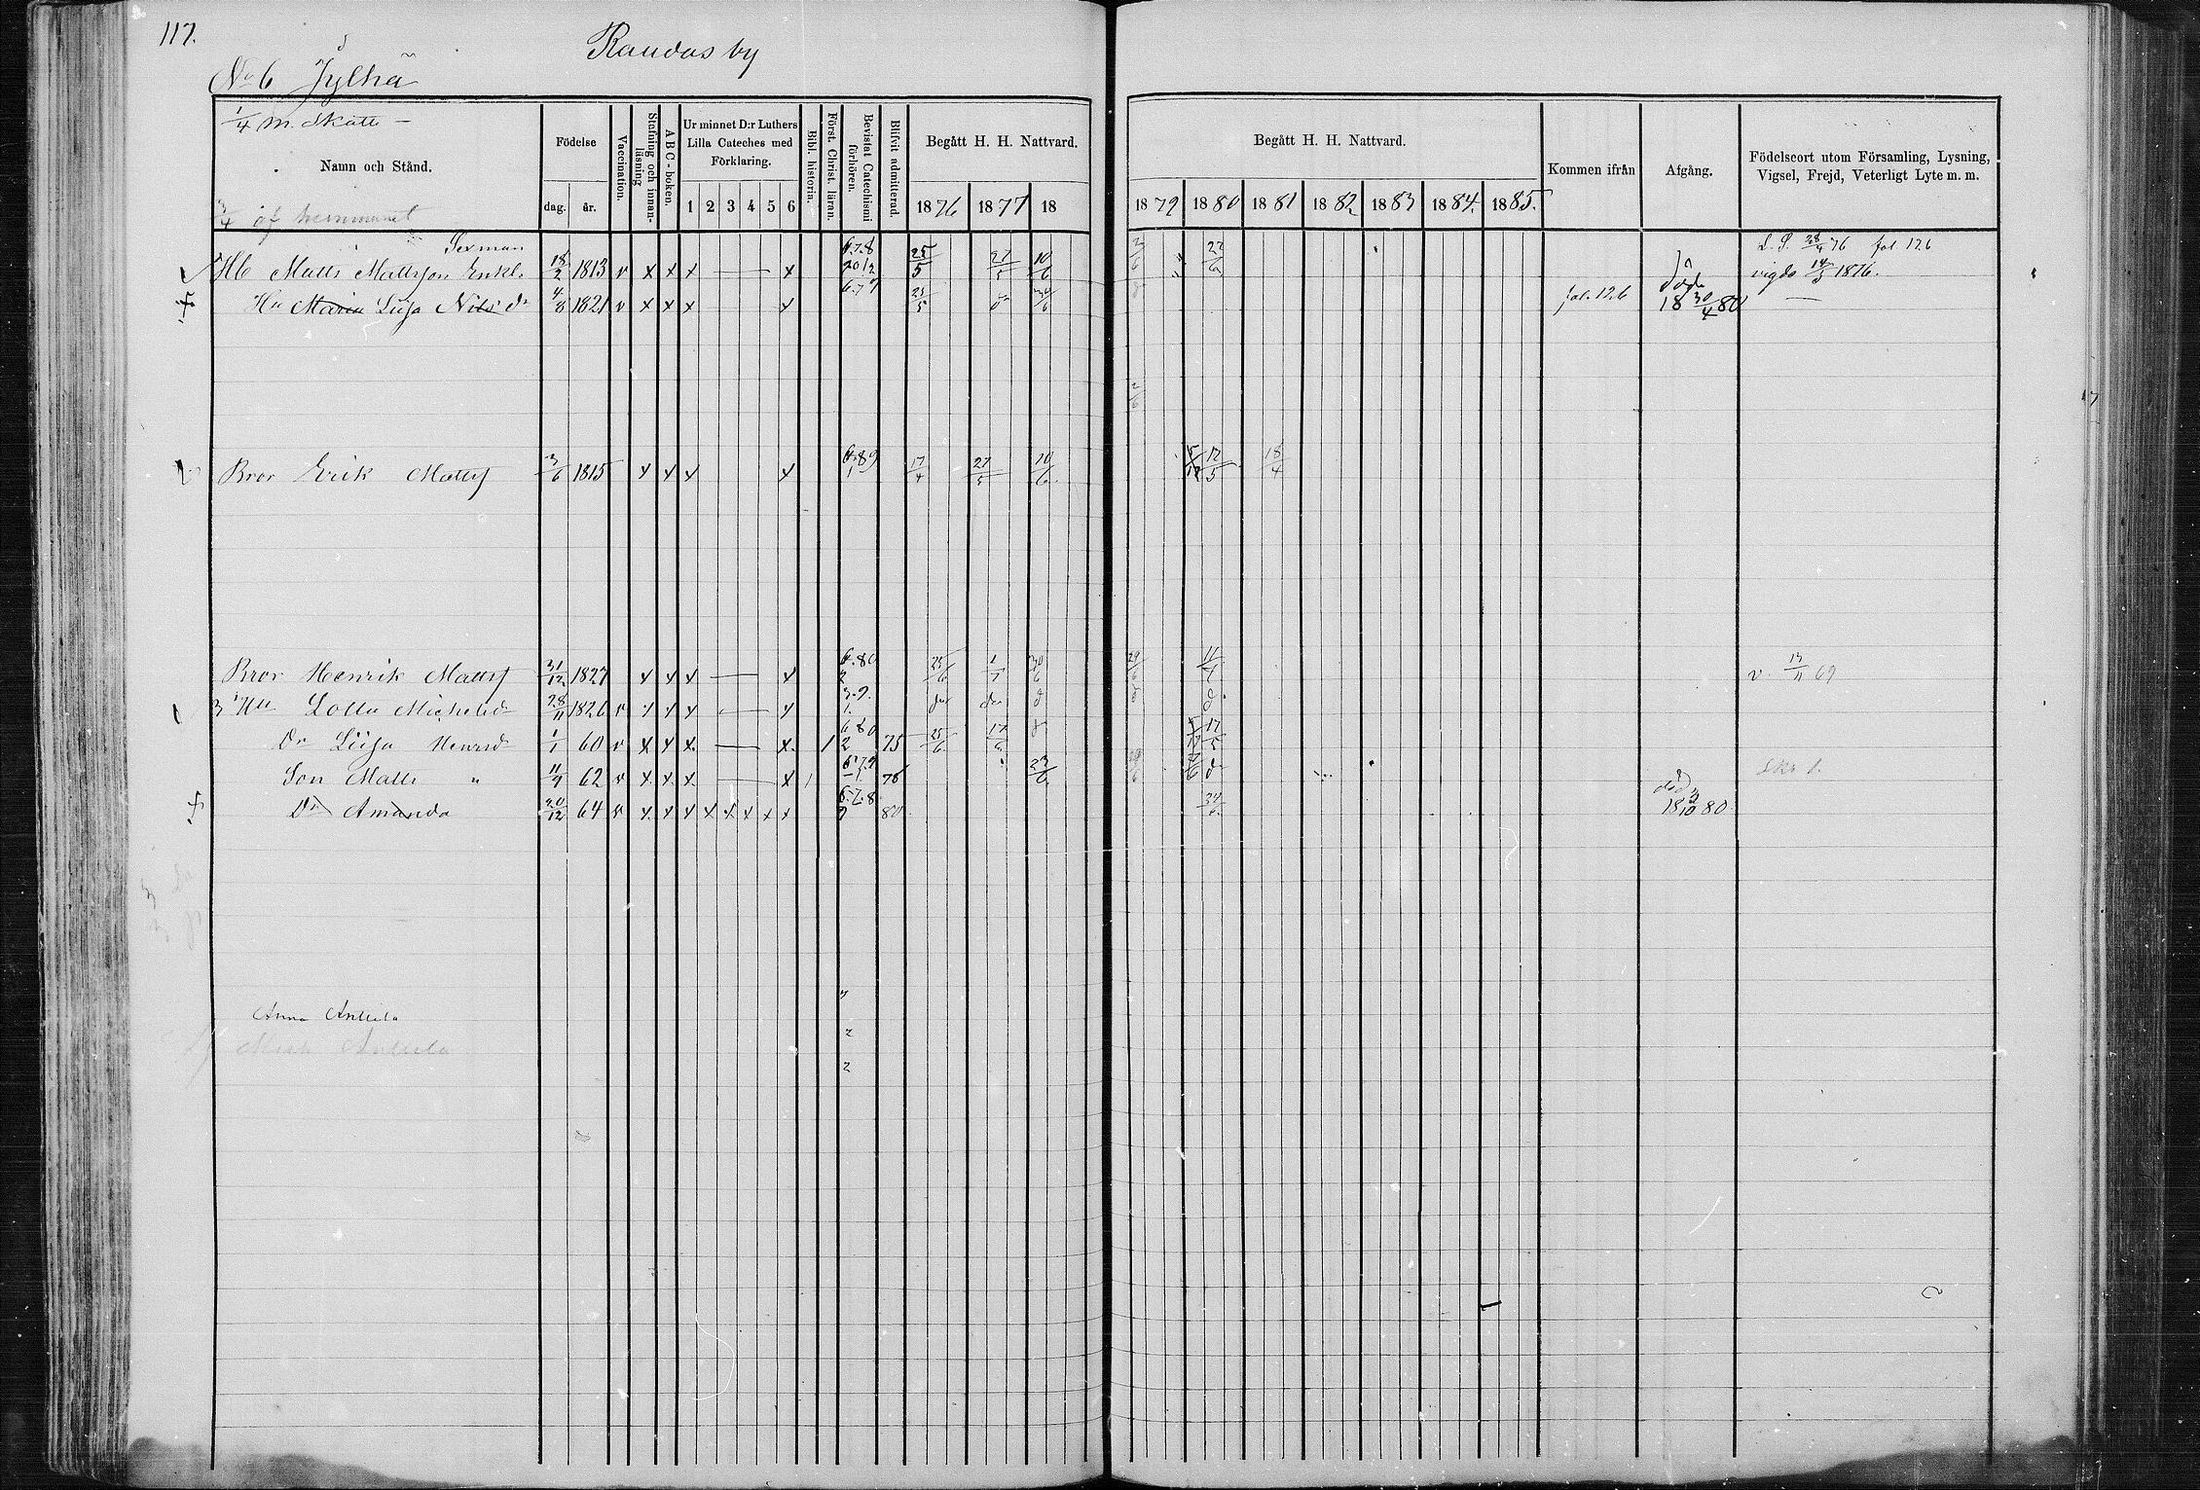 117.
Raudas by
No 6 Jylhä
1/4 m. Skatt
Namn och Stånd.
3/4 af hemmanet
Födelse
dag. år.
Vaccination.
Stafning och innanläsning
ABC-boken.
Ur minnet D:r Luthers Lilla Cateches med Förklaring.
1 2 3 4 5 6
Bibl. historia.
Först. Christ. läran.
Bevistat Catechismi förhören.
Blifvit admitterad.
Begått H. H. Nattvard.
1876 1877 18
Begått H. H. Nattvard.
1879 1880 1881 1882 1883 1884. 1885.
Kommen ifrån
Afgång.
Födelseort utom Församling, Lysning, Vigsel, Frejd, Veterligt Lyte m. m.
Sexman
Hb Matts Mattsson Enkl. 18/2 1813 v x x x — x 25/5 27/5 10/6 22/6 L. S. 28/4 76 fol 126
vigde 14/5 1876.
Hu Maria Lisa Nilsdr 4/8 1821 v x x x x 25/5 fol. 126 död 18 30/4 80
Bror Erik Matts 3/6 1815 x x x x 17/4 27/5 10/6 17/5 18/4
Bror Henrik Matts 31/12 1827 x x x — x 25/6 1/7 29/6 11/7 v. 13/11 69
3 Hu Lolla Michelsdr 28/11 1826 v x x x — x
Dr Lisa Henrsdr 1/1 60 v x x x — x 1 75 25/6 17/6 17/5
Son Matts " 11/9 62 v x x x — x 78 23/6
Dr Amanda 20/12 64 v x x x x x x x x 80 död 18 3/10 80
Anna Anttila
Anttila
2
2